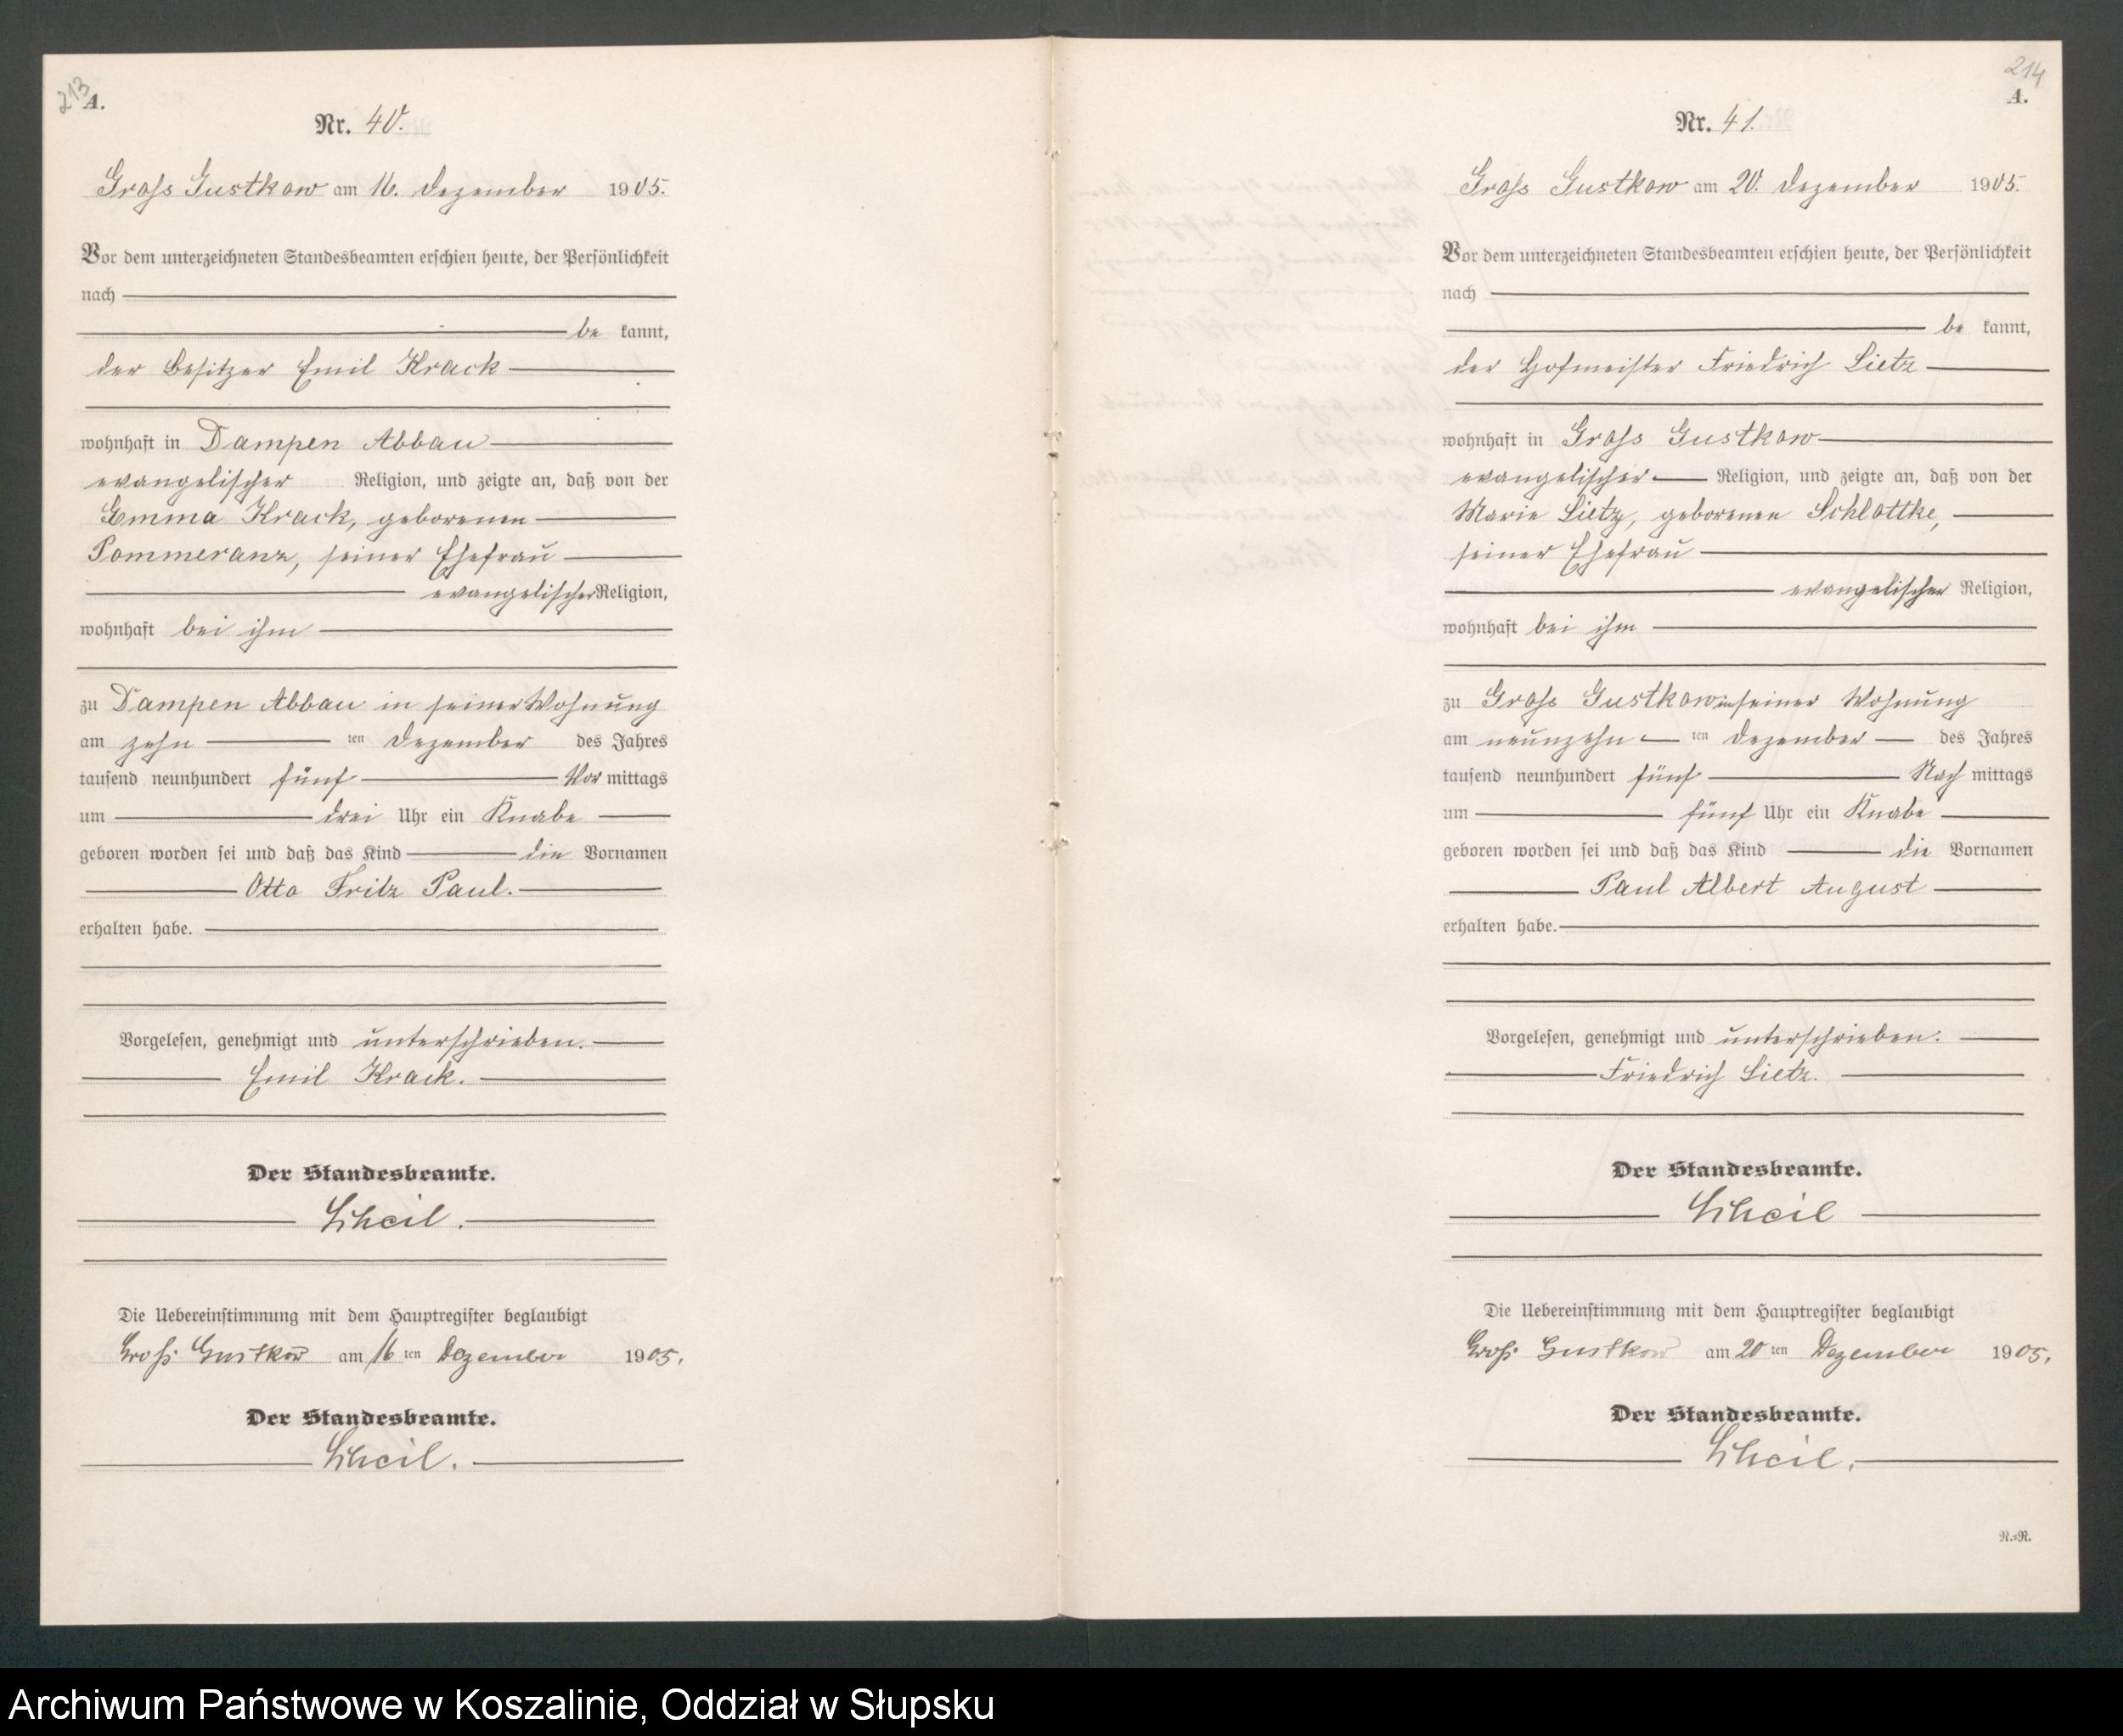 213
A.
Nr. 40.
Gross Gustkow am 16. Dezember 1905.
Vor dem unterzeichneten Standesbeamten erschien heute, der Persönlichkeit
nach
be kannt,
der Besitzer Emil Krack
wohnhaft in Dampen Abbau
evangelischer Religion, und zeigte an, daß von der
Emma Krack, geborenen
Pommeranz, seiner Ehefrau
evangelischer Religion,
wohnhaft bei ihm
zu Dampen Abbau in seiner Wohnung
am zehn ten Dezember des Jahres
tausend neunhundert fünf Vor mittags
um drei Uhr ein Knabe
geboren worden sei und daß das Kind die Vornamen
Otto Fritz Paul.
erhalten habe.
Vorgelesen, genehmigt und unterschrieben.
Emil Krack.
Der Standesbeamte.
Scheil.
Die Uebereinstimmung mit dem Hauptregister beglaubigt
Gross Gustkow am 16 ten Dezember 1905.
Der Standesbeamte.
Scheil.
214
A.
Nr. 41.
Gross Gustkow am 20. Dezember 1905.
Vor dem unterzeichneten Standesbeamten erschien heute, der Persönlichkeit
nach
be kannt,
der Hofmeister Friedrich Lietz
wohnhaft in Gross Gustkow
evangelischer Religion, und zeigte an, daß von der
Marie Lietz, geborenen Schlottke,
seiner Ehefrau
evangelischer Religion,
wohnhaft bei ihm
zu Gross Gustkow in seiner Wohnung
am neunzehn ten Dezember des Jahres
tausend neunhundert fünf Nach mittags
um fünf Uhr ein Knabe
geboren worden sei und daß das Kind die Vornamen
Paul Albert August
erhalten habe.
Vorgelesen, genehmigt und unterschrieben.
Friedrich Lietz.
Der Standesbeamte.
Scheil
Die Uebereinstimmung mit dem Hauptregister beglaubigt
Gross Gustkow am 20 ten Dezember 1905.
Der Standesbeamte.
Scheil.
N.=R.
Archiwum Państwowe w Koszalinie, Oddział w Słupsku